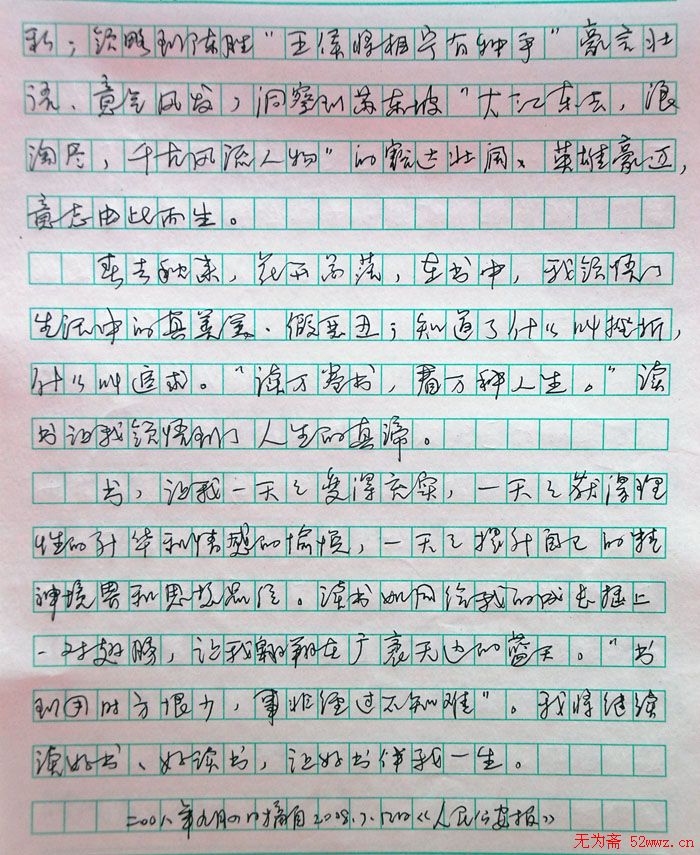 彩；领略到陈胜“王侯将相宁有种乎”豪言壮
语、意气风发，洞察到苏东坡“大江东去，浪
淘尽，千古风流人物”的豁达壮阔、英雄豪迈，
意志由此而生。
春去秋来，花开花落，在书中，我领悟了
生活中的真善美、假恶丑；知道了什么叫挫折，
什么叫追求。“读万卷书，看万种人生。”读
书让我领悟到了人生的真谛。
书，让我一天天变得充实，一天天获得理
性的升华和情感的愉悦，一天天提升自己的精
神境界和思想品位。读书如同给我的成长插上
一对翅膀，让我翱翔在广袤无边的蓝天。“书
到用时方恨少，事非经过不知难”。我将继续
读好书、好读书，让好书伴我一生。
二00八年九月 日摘自2008.7. 《人民公安报》
无为斋 52wwz.cn